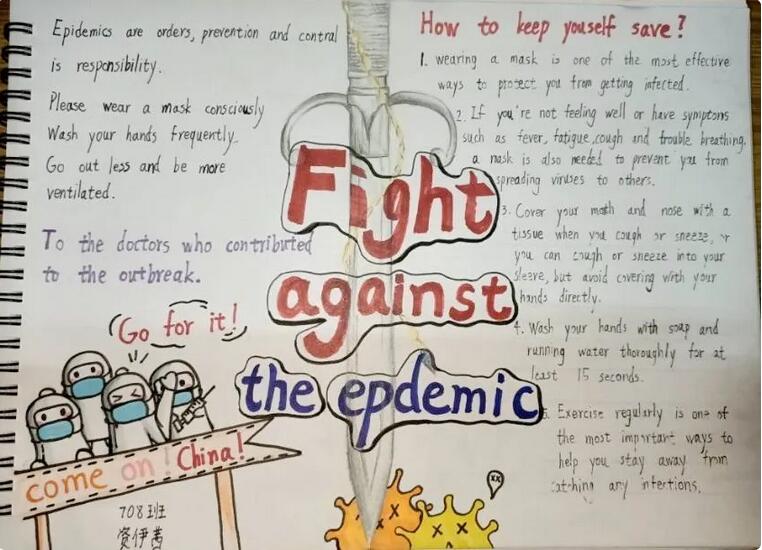 Epidemics are orders, prevention and control
is responsibility.
Please wear a mask consciously
Wash your hands frequently.
Go out less and be more
ventilated.
To the doctors who contributed
to the outbreak.
Go for it!
come on ! China!
708班
资伊茜
Fight
against
the epdemic
How to keep youself save?
1. wearing a mask is one of the most effective
ways to protect you from getting infected.
2. If you're not feeling well or have symptoms
such as fever, fatigue, cough and trouble breathing.
a mask is also needed to prevent you from
spreading viruses to others.
3. Cover your moth and nose with a
tissue when you cough or sneeze, or
you can cough or sneeze into your
sleeve, but avoid covering with your
hands directly.
4. Wash your hands with soap and
running water thoroughly for at
least 15 seconds.
5. Exercise regularly is one of
the most important ways to
help you stay away from
catching any infections.